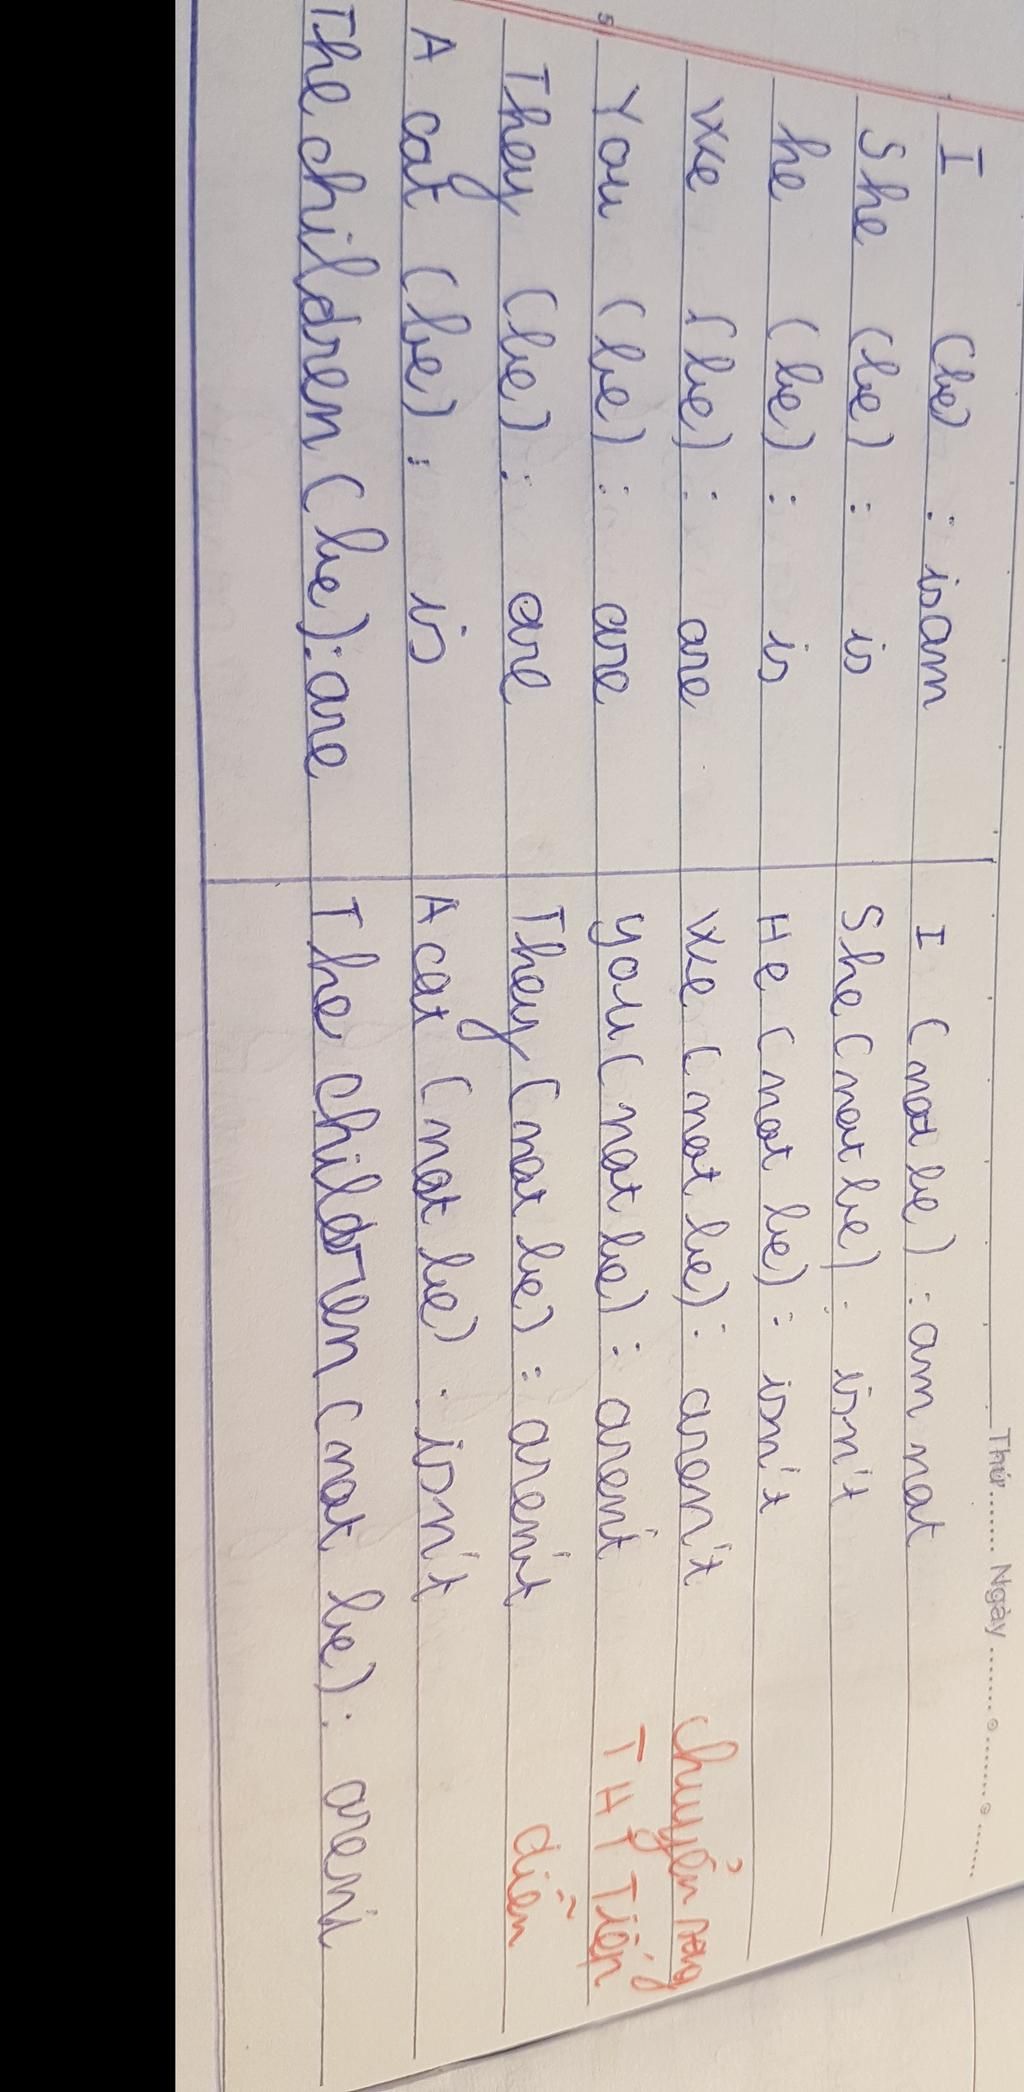 Thứ....... Ngày.......
I (be) : is am
I (not be) : am not
She (be) : is
She (not be) : isn't
he (be) : is
He (not be) : isn't
We (be) : are
We (not be) : aren't
chuyển sang
You (be) : are
you (not be) : aren't
THT Tiếp
They (be) : are
They (not be) : aren't
diễn
A cat (be) : is
A cat (not be) : isn't
The children (be) : are
The children (not be) :